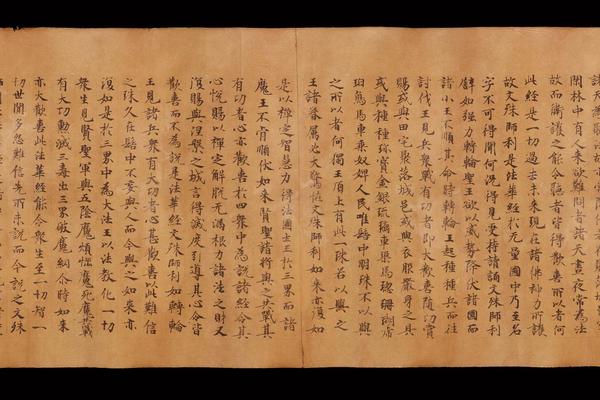 閑林中有人來欲難問者諸天晝夜常為法
故而衛護之能令聽者皆得歡喜所以者何
此經是一切過去未來現在諸佛神力所護
故文殊師利是法華經於无量國中乃至名
字不可得聞何況得見受持讀誦文殊師利
譬如强力轉輪聖王欲以威勢降伏諸國而
諸小王不順其命時轉輪王起種種兵而往
討伐王見兵衆戰有功者即大歡喜隨功賞
賜或與田宅聚落城邑或與衣服嚴身之具
或與種種珍寶金銀琉璃車璩馬瑙珊瑚虎
珀象馬車乘奴婢人民唯髻中明珠不以與
之所以者何獨王頂上有此一珠若以與之
王諸眷屬必大驚怪文殊師利如來亦復如
是以禪定智慧力得法國土王於三界而諸
魔王不肯順伏如來賢聖諸將與之共戰其
有功者心亦歡喜於四衆中為說諸經令其
心悅賜以禪定解脫无漏根力諸法之財又
復賜與涅槃之城言得滅度引導其心令皆
歡喜而不為說是法華經文殊師利如轉輪
王見諸兵衆有大功者心甚歡喜以此難信
之珠久在髻中不妄與人而今與之如來亦
復如是於三界中為大法王以法教化一切
衆生見賢聖軍與五陰魔煩惱魔死魔共戰
有大功勳滅三毒出三界破魔網尒時如來
亦大歡喜此法華經能令衆生至一切智一
切世間多怨難信先所未說而今說之文殊